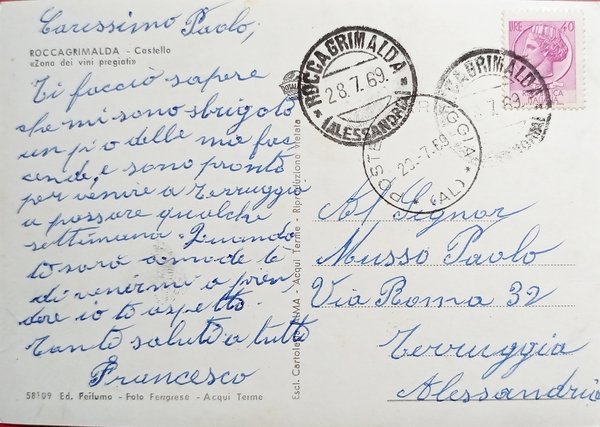 Carissimo Paolo,
ROCCAGRIMALDA - Castello
«Zona dei vini pregiati»
Ti faccio sapere
che mi sono sbrigolo
un pio delle mia fac
cende, e sono pronto
per venire a Terruggia
a passare qualche
settimana. Quando
to sarà comode te
di venirmi a pren,
dere io to aspetto.
Tanto saluto a tutti
Francesco
58109 Ed. Pelfumo - Foto Ferrgrese - Acqui Terme
Escl. Cartoleria - Acqui Terme - Riproduzione Vietata
ROCCAGRIMALDA
28.7.69.
(ALESSANDRIA)
CAGRIMALDA
7.69.
POSTE RUGGIA
29-7.69
(AL)
LIRE 40
Al Signor
Musso Paolo
Via Roma 32
Terruggia
Alessandria